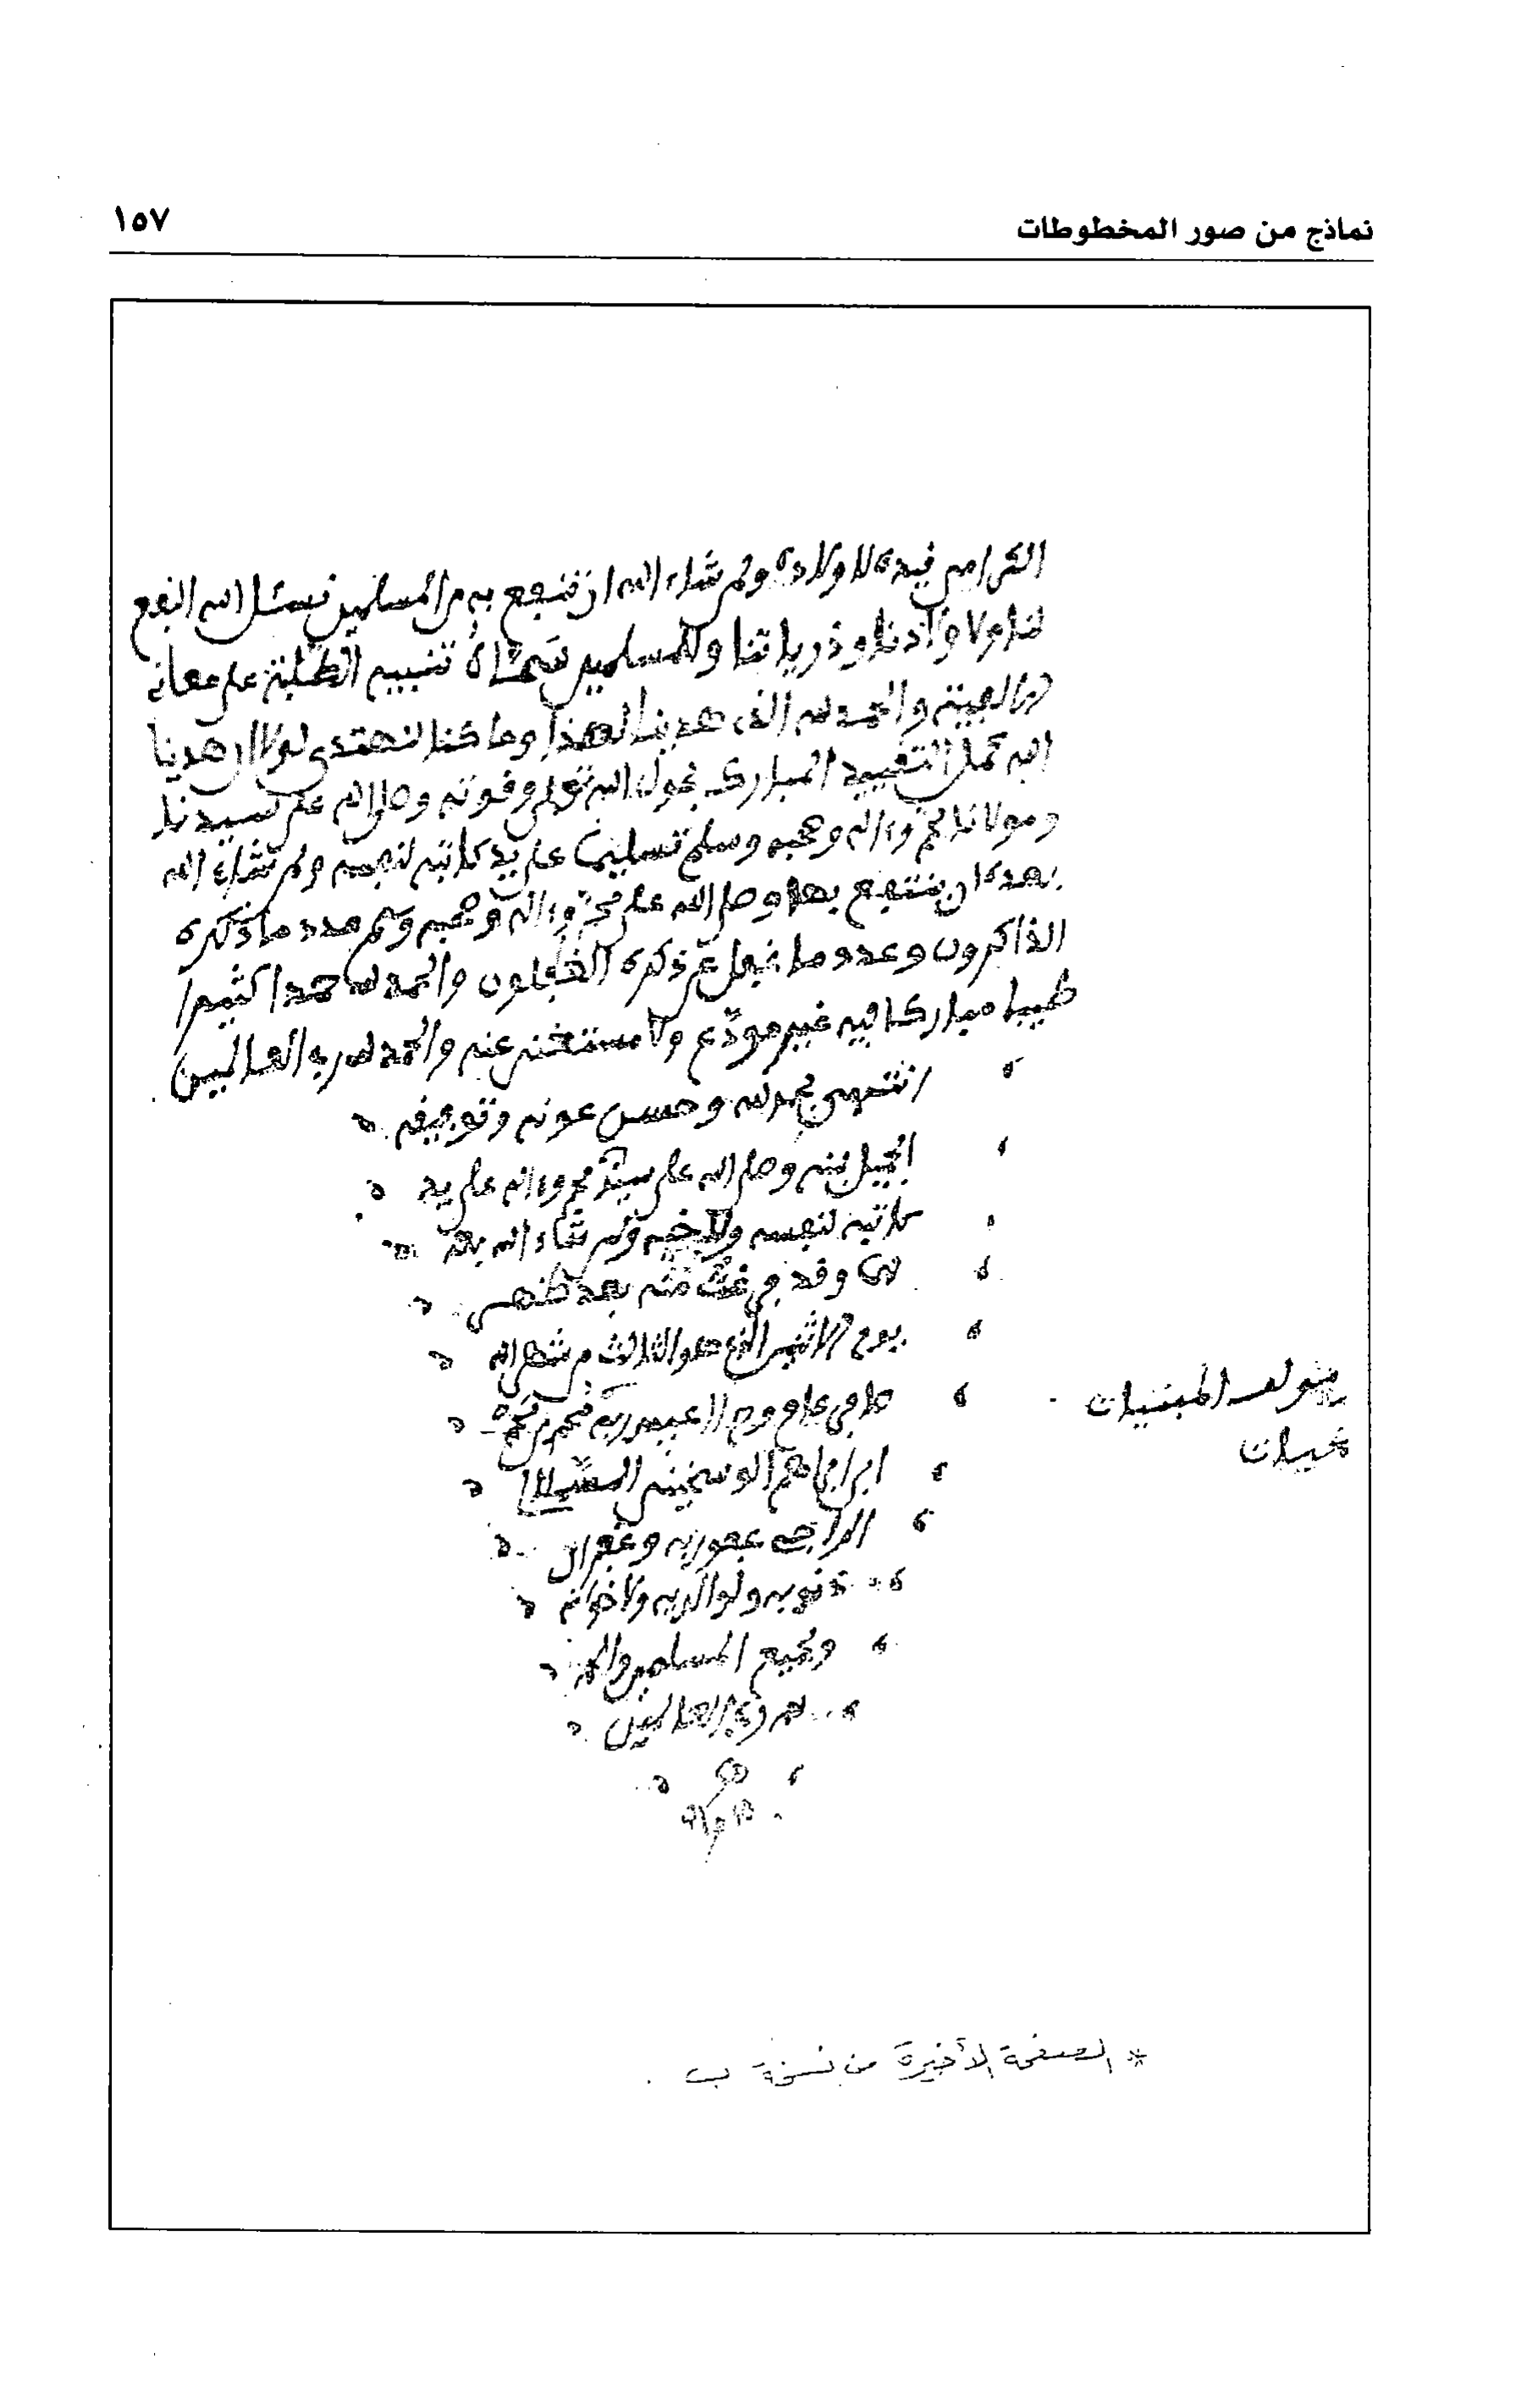 نماذج من صور المخطوطات
١٥٧
لاولاده ولمن شاء الله ان ينتفع به من المسلمين نسئل الله النفع
لنا ولاولادنا وذرياتنا وللمسلمين سميناه تنبيه الطلبة على معاني
الالفية والحمد لله الذي هدينا لهذا وما كنا لنهتدي لولا ان هدينا
الله كمل التقييد المبارك بحول الله تعلى وقوته وصلى الله على سيدنا
ومولانا محمد وءاله وصحبه وسلم تسليما على يد كاتبه لنفسه ولمن شاء الله
بعده ان ينتفع بها وصلى الله على محمد وءاله وصحبه وسلم عدد ما ذكره
الذاكرون وعدد ما غفل عن ذكره الغفلون والحمد لله حمدا كثيرا
طيبا مباركا فيه غير مودع ولا مستغنى عنه والحمد لله رب العالمين
انتهى بحمد الله وحسن عونه وتوفيقه
الجميل بمنه وصلى الله على سيدنا محمد وءاله على يد
كاتبه لنفسه ولأخيه ولمن شاء الله بعد
يوم الاثنين الذي هو الثالث من شهر الله
ابراهيم
الراجي عفو ربه وغفران
ذنوبه ولوالديه ولاخوانه
ولجميع المسلمين والحمد
لله رب العالمين
* الصفحة الأخيرة من نسخة ب .